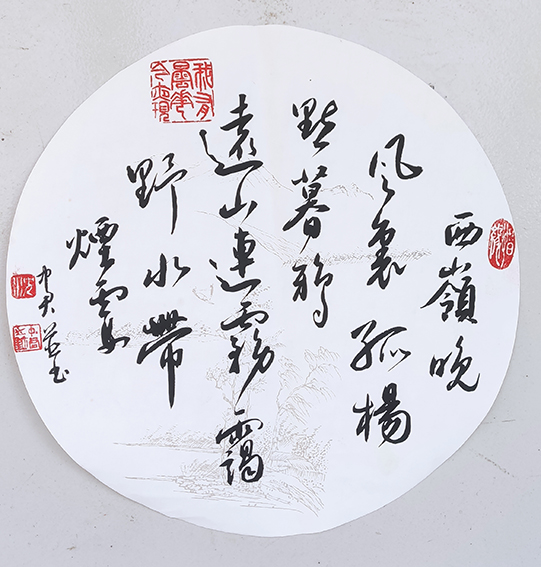 西嶺晚
风裏孤楊
點暮鴉
遠山連霧靄
野水帶
煙霞